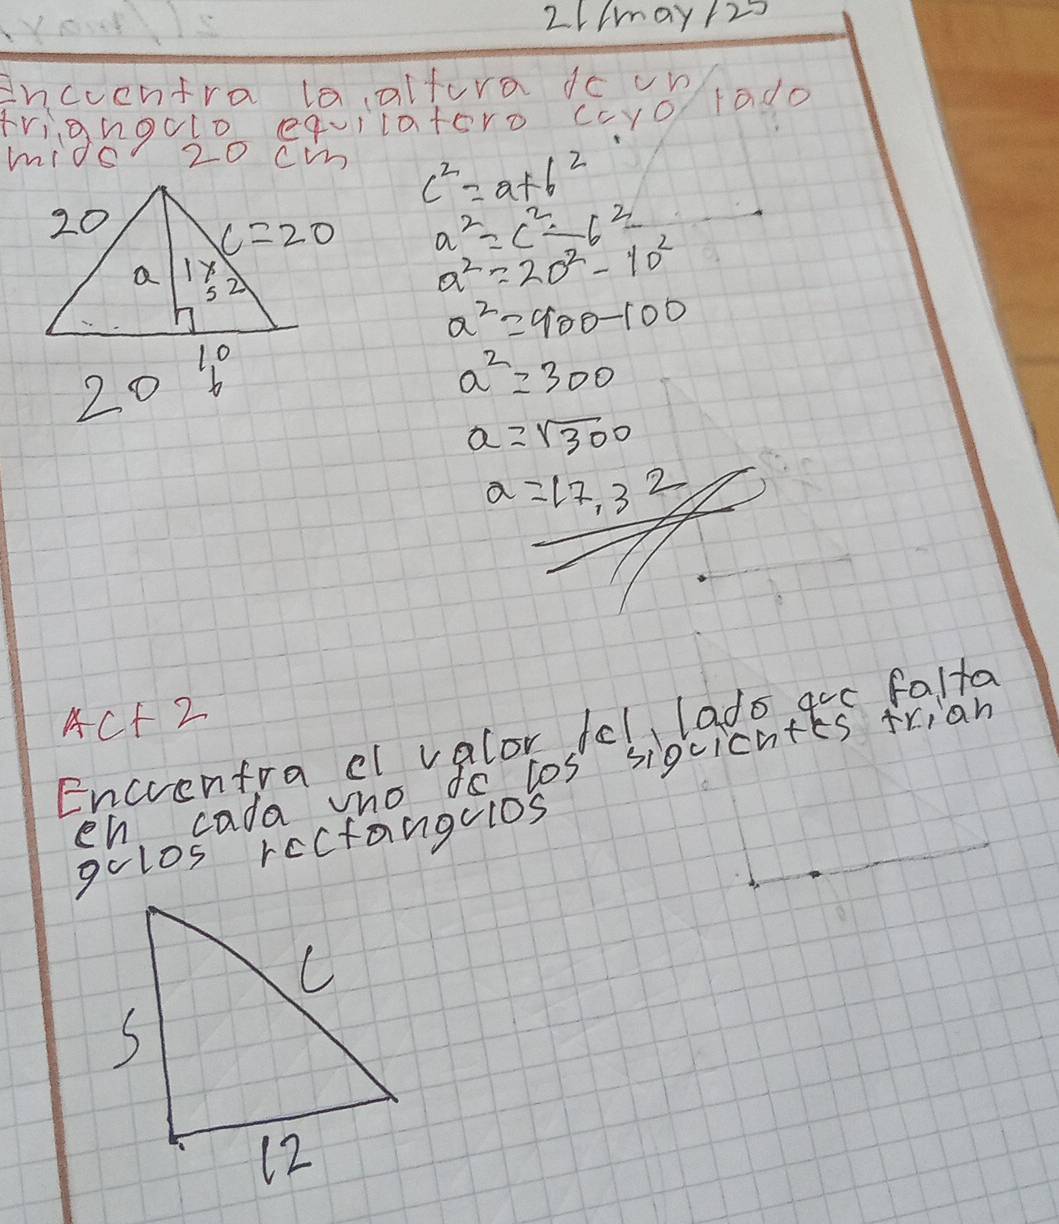 21/may/25
Encuentra la altura de un
triangulo equilatero cuyo lado
mide 20 cm
20
c=20
a
10
b
20
c²=a+b²
a²=c²-b²
a²=20²-10²
a²=400-100
a²=300
a=√300
a=17,32
Act 2
Encuentra el valor del lado que falta
en cada uno de los siguientes trian
gulos rectangulos
5
c
12